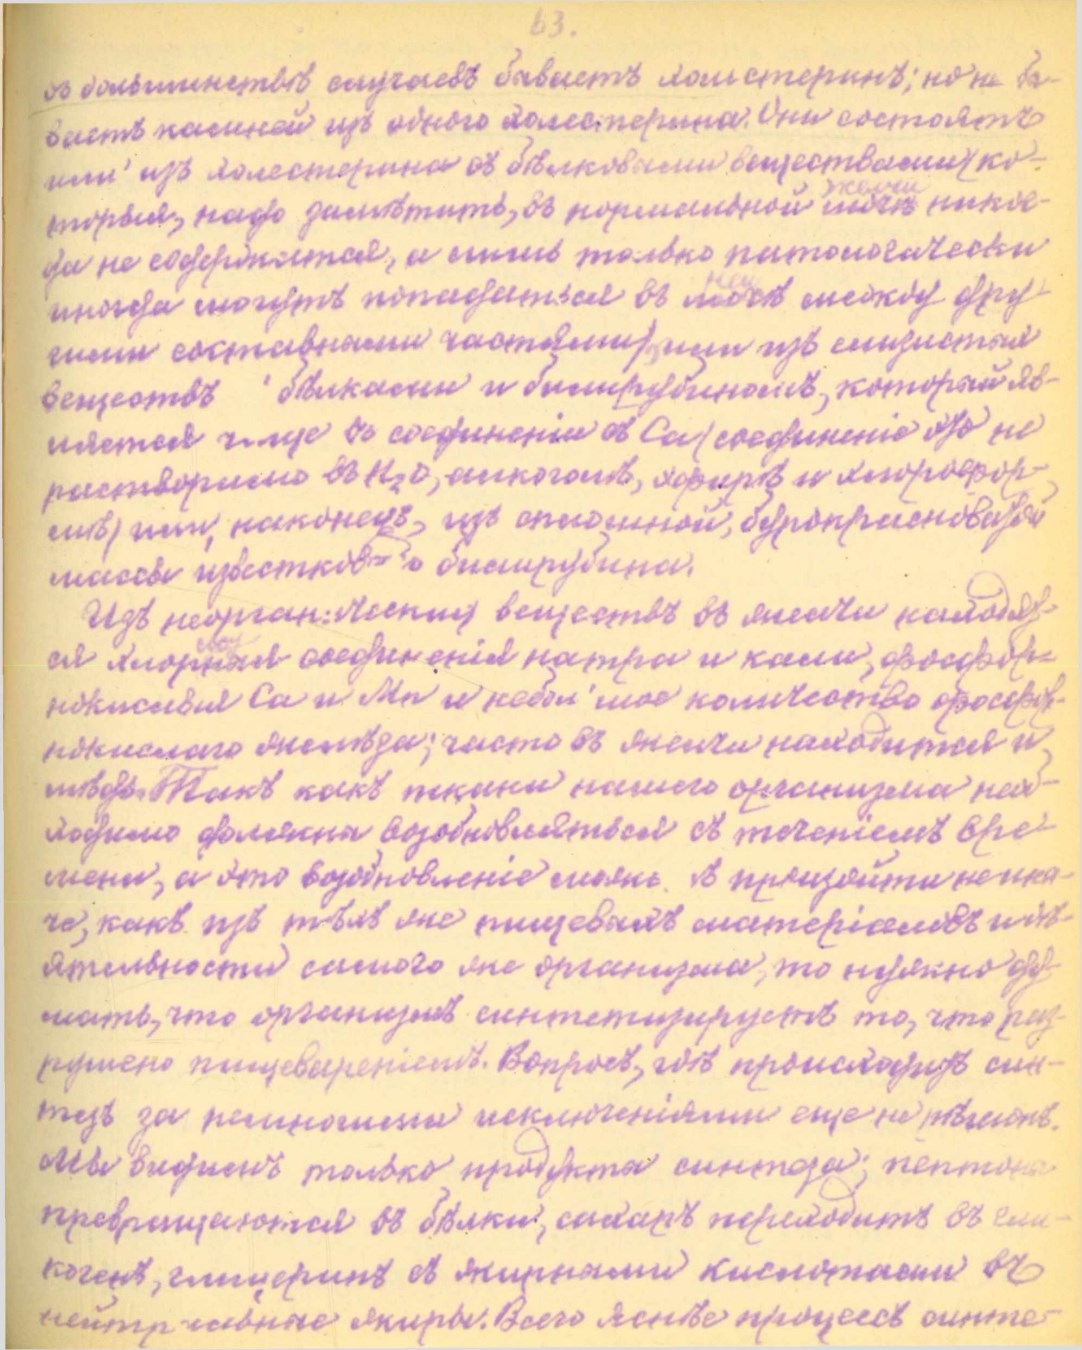 63.
въ большинствѣ случаевъ бываетъ холестеринъ; но не бы-
ваетъ камней изъ одного холестерина. Они состоятъ
или изъ холестерина съ бѣлковыми веществами (ко-
торыя, надо замѣтить, въ нормальной желчи никог-
да не содержатся, а лишь только патологически
иногда могутъ попадаться въ ней между дру-
гими составными частями) или изъ слизистыхъ
веществъ бѣлками и билирубиномъ, который яв-
ляется чаще въ соединеніи съ Ca (соединеніе это не
растворимо въ H₂O, алкоголѣ, эфирѣ и хлорофор-
мѣ) или, наконецъ, изъ сплошной, бурокрасноватой
массы известковаго билирубина.
Изъ неорганическихъ веществъ въ желчи находят-
ся хлорныя соединенія натра и кали, фосфор-
нокислыя Ca и Mn и небольшое количество фосфор-
нокислаго желѣза; часто въ желчи находится и
мѣдь. Такъ какъ ткани нашего организма необ-
ходимо должны возобновляться съ теченіемъ вре-
мени, а это возобновленіе можетъ произойти не ина-
че, какъ изъ тѣхъ же пищевыхъ матеріаловъ и дѣ-
ятельности самого же организма, то нужно ду-
мать, что организмъ синтетизируетъ то, что раз-
рушено пищевареніемъ. Вопросъ, гдѣ происходитъ син-
тезъ за немногими исключеніями еще не рѣшенъ.
Мы видимъ только продукты синтеза; пептоны
превращаются въ бѣлки, сахаръ переходитъ въ гли-
когенъ, глицеринъ съ жирными кислотами въ
нейтральные жиры. Всего яснѣе процессъ синте-